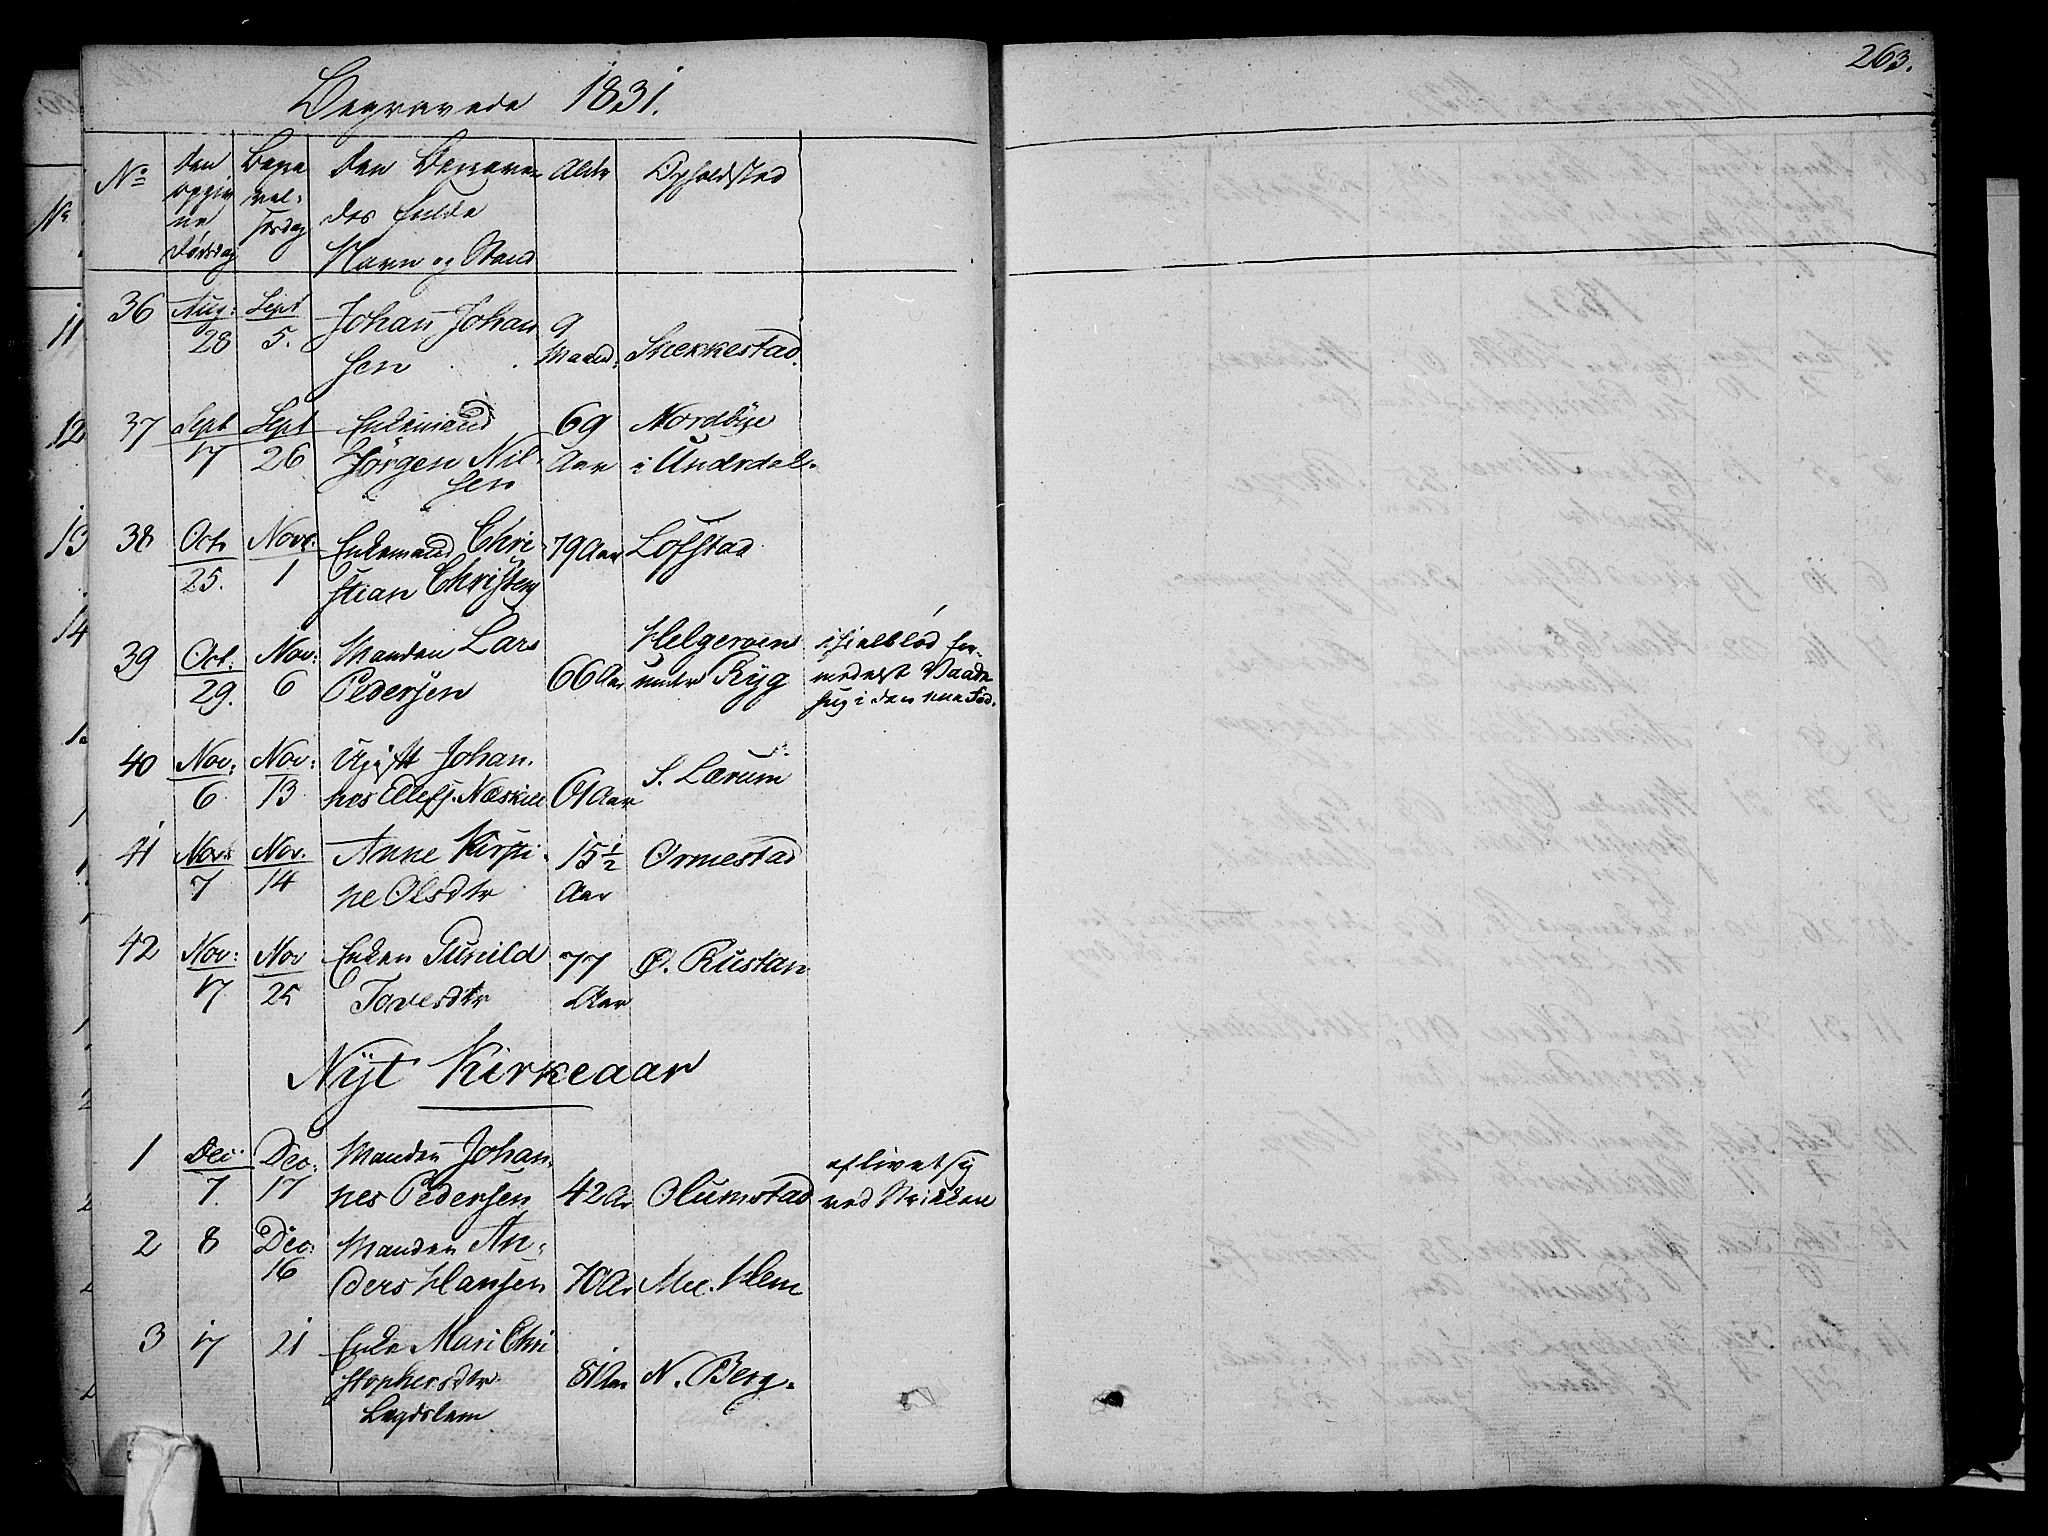 263.
Begravede 1831.
No
Den opgivne Dødsdag
Begravelsesdag
Den Begravedes fulde Navn og Stand
Alder
Opholdsted
36 Aug: 28 Sept 5. Johan Johansen 9 Maaned: Snekkestad.
37 Sept 17 Sept 26 Enkemand Jørgen Nilsen 69 Aar Nordbye i Undrdal.
38 Oct. 25. Novr. 1 Enkemand Christian Christens 79 Aar Lofstad
39 Oct: 29. Nov: 6 Manden Lars Pedersen 66 Aar Helgeroen under Ryg ihjelblød formedelst Vaadehug i den ene Fod.
40 Nov: 6 Nov: 13 Ugift Johannes Ellefs. Næskile 61 Aar S. Lærum
41 Nov: 7 Nov. 14 Anne Kirstine Olsdtr 15 1/2 Aar Ormestad
42 Nov: 17 Nov 25 Enken Gunild Tovesdtr 77 Aar Ø. Rustan
Nÿt Kirkeaar
1 Dec: 7. Dec: 17 Manden Johannes Pedersen 42 Ar Olumstad aflivet sig ved Strikken
2 8 Dec: 16 Manden Anders Hansen 70 Ar Mel. Hem
3 17 21 Enke Mari Christophersdtr Lægdslem 81 Aar N. Berg.